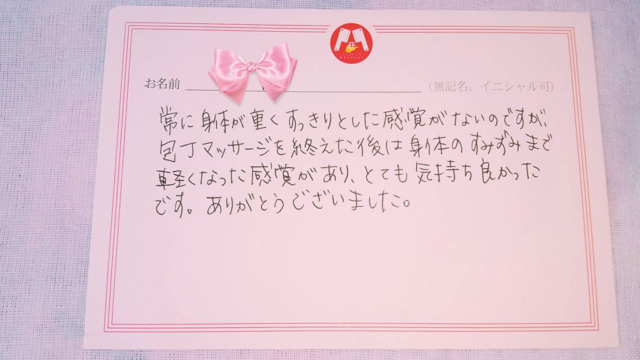 お名前
(無記名、イニシャル可)
常に身体が重くすっきりとした感覚がないのですが、
包丁マッサージを終えた後は身体のすみずみまで
軽くなった感覚があり、とても気持ち良かった
です。ありがとうございました。